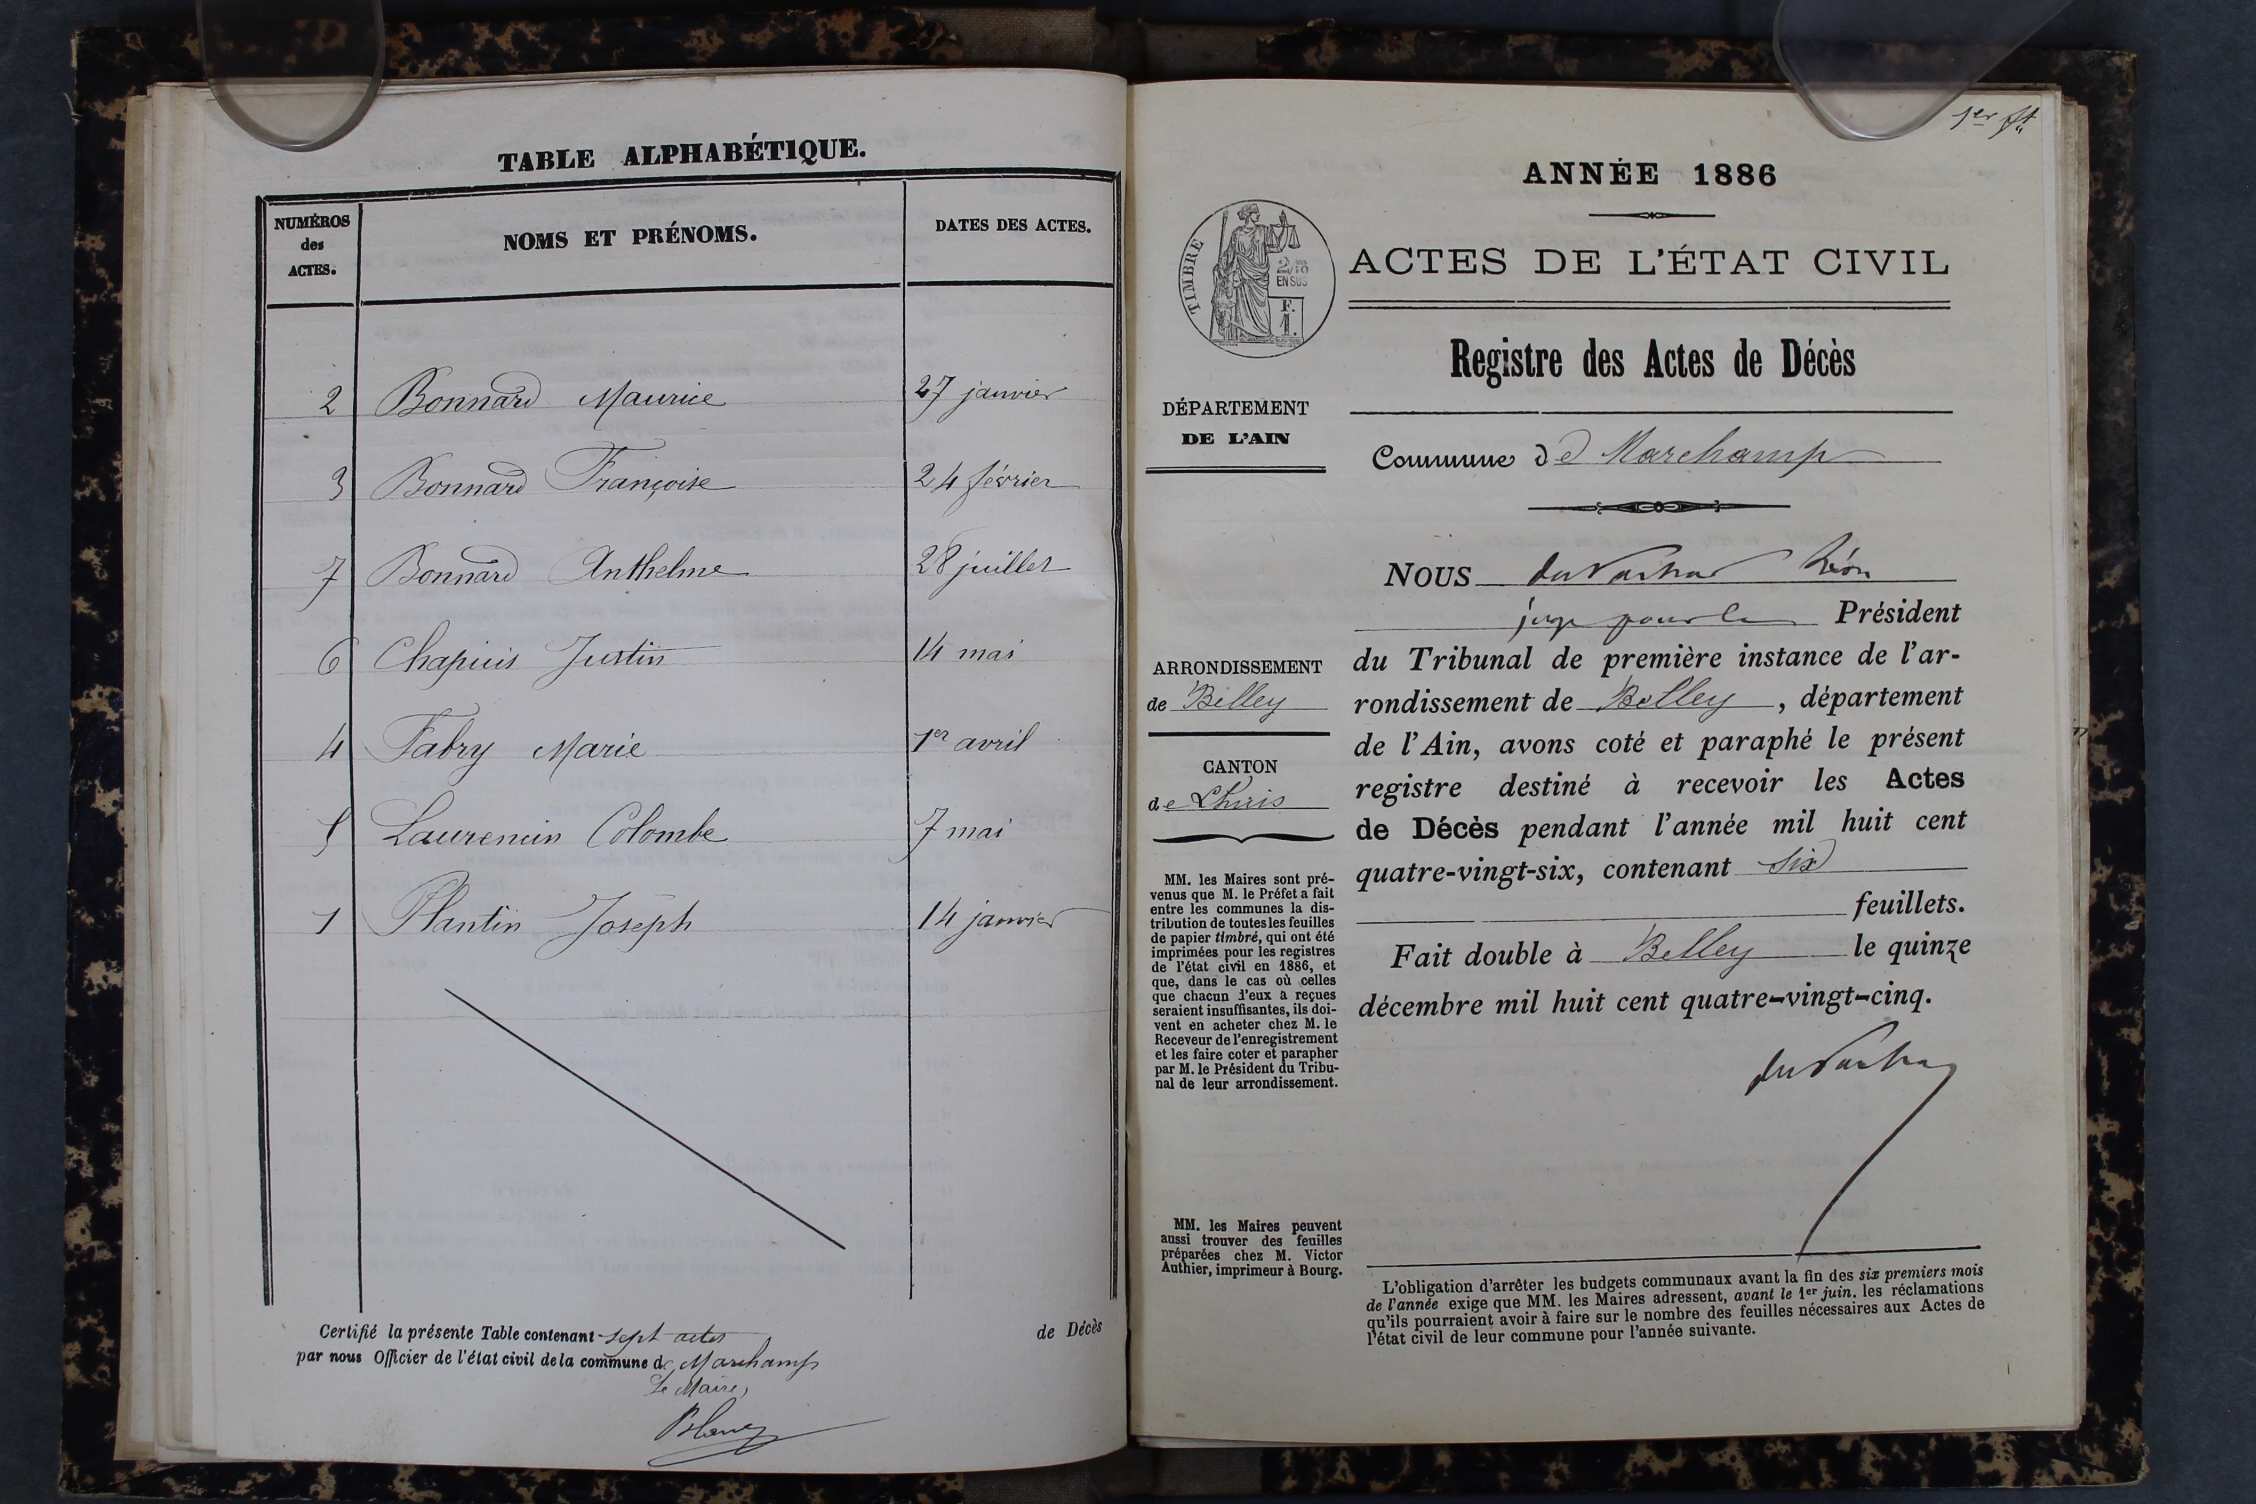 TABLE ALPHABÉTIQUE.
NUMÉROS
des
ACTES.
NOMS ET PRÉNOMS.
DATES DES ACTES.
2 Bonnard Maurice 27 janvier
3 Bonnard Françoise 24 février
7 Bonnard Anthelme 28 juillet
6 Chapuis Justin 14 mai
4 Fabry Marie 1er avril
5 Laurencin Colombe 7 mai
1 Plantin Joseph 14 janvier
Certifié la présente Table contenant sept actes de Décès
par nous Officier de l'état civil de la commune de Marchamp
Le Maire,
1er ft
ANNÉE 1886
TIMBRE
2/10
EN SUS
F.
1.
ACTES DE L'ÉTAT CIVIL
Registre des Actes de Décès
DÉPARTEMENT
DE L'AIN
Commune de Marchamp
ARRONDISSEMENT
de Belley
CANTON
de Lhuis
MM. les Maires sont pré-
venus que M. le Préfet a fait
entre les communes la dis-
tribution de toutes les feuilles
de papier timbré, qui ont été
imprimées pour les registres
de l'état civil en 1886, et
que, dans le cas où celles
que chacun d'eux a reçues
seraient insuffisantes, ils doi-
vent en acheter chez M. le
Receveur de l'enregistrement
et les faire coter et parapher
par M. le Président du Tribu-
nal de leur arrondissement.
MM. les Maires peuvent
aussi trouver des feuilles
préparées chez M. Victor
Authier, imprimeur à Bourg.
NOUS Léon
juge pour le Président
du Tribunal de première instance de l'ar-
rondissement de Belley, département
de l'Ain, avons coté et paraphé le présent
registre destiné à recevoir les Actes
de Décès pendant l'année mil huit cent
quatre-vingt-six, contenant six
feuillets.
Fait double à Belley le quinze
décembre mil huit cent quatre-vingt-cinq.
L'obligation d'arrêter les budgets communaux avant la fin des six premiers mois
de l'année exige que MM. les Maires adressent, avant le 1er juin, les réclamations
qu'ils pourraient avoir à faire sur le nombre des feuilles nécessaires aux Actes de
l'état civil de leur commune pour l'année suivante.